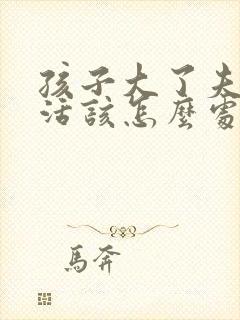 孩子大了夫
活該怎麼處
馬奔